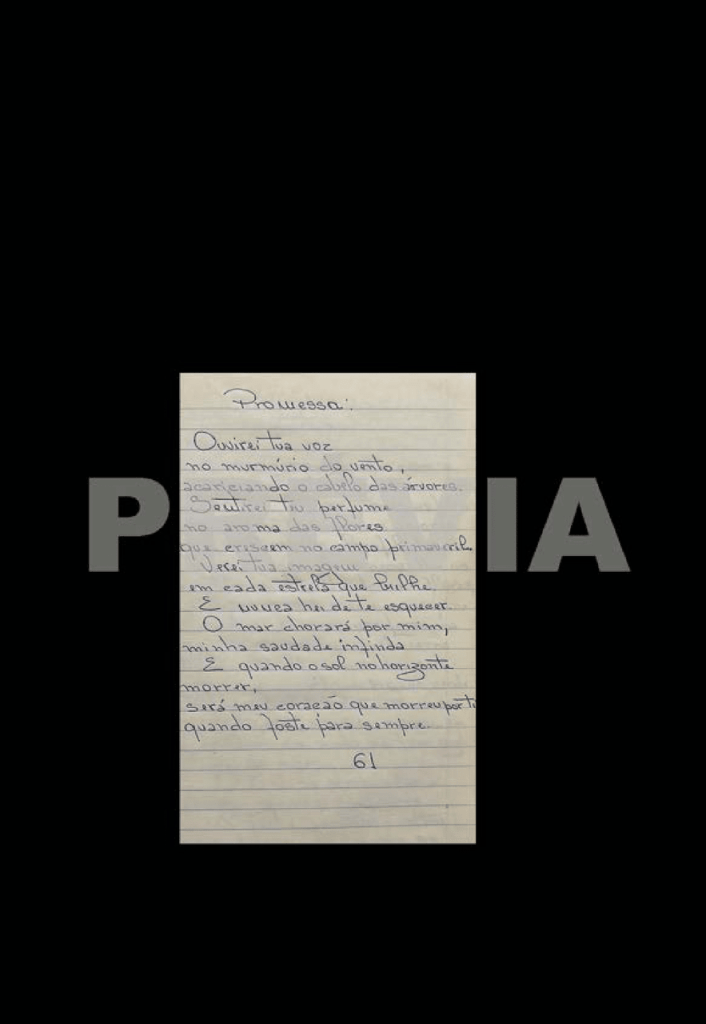 Promessa:
Ouvirei tua voz
no murmúrio do vento,
acariciando o cabelo das árvores.
Sentirei teu perfume
no aroma das flores
que crescem no campo primaveril.
Verei tua imagem
em cada estrela que brilhe.
E nunca hei de te esquecer.
O mar chorará por mim,
minha saudade infinda
E quando o sol no horizonte
morrer,
será meu coração que morreu por ti
quando foste para sempre.
61